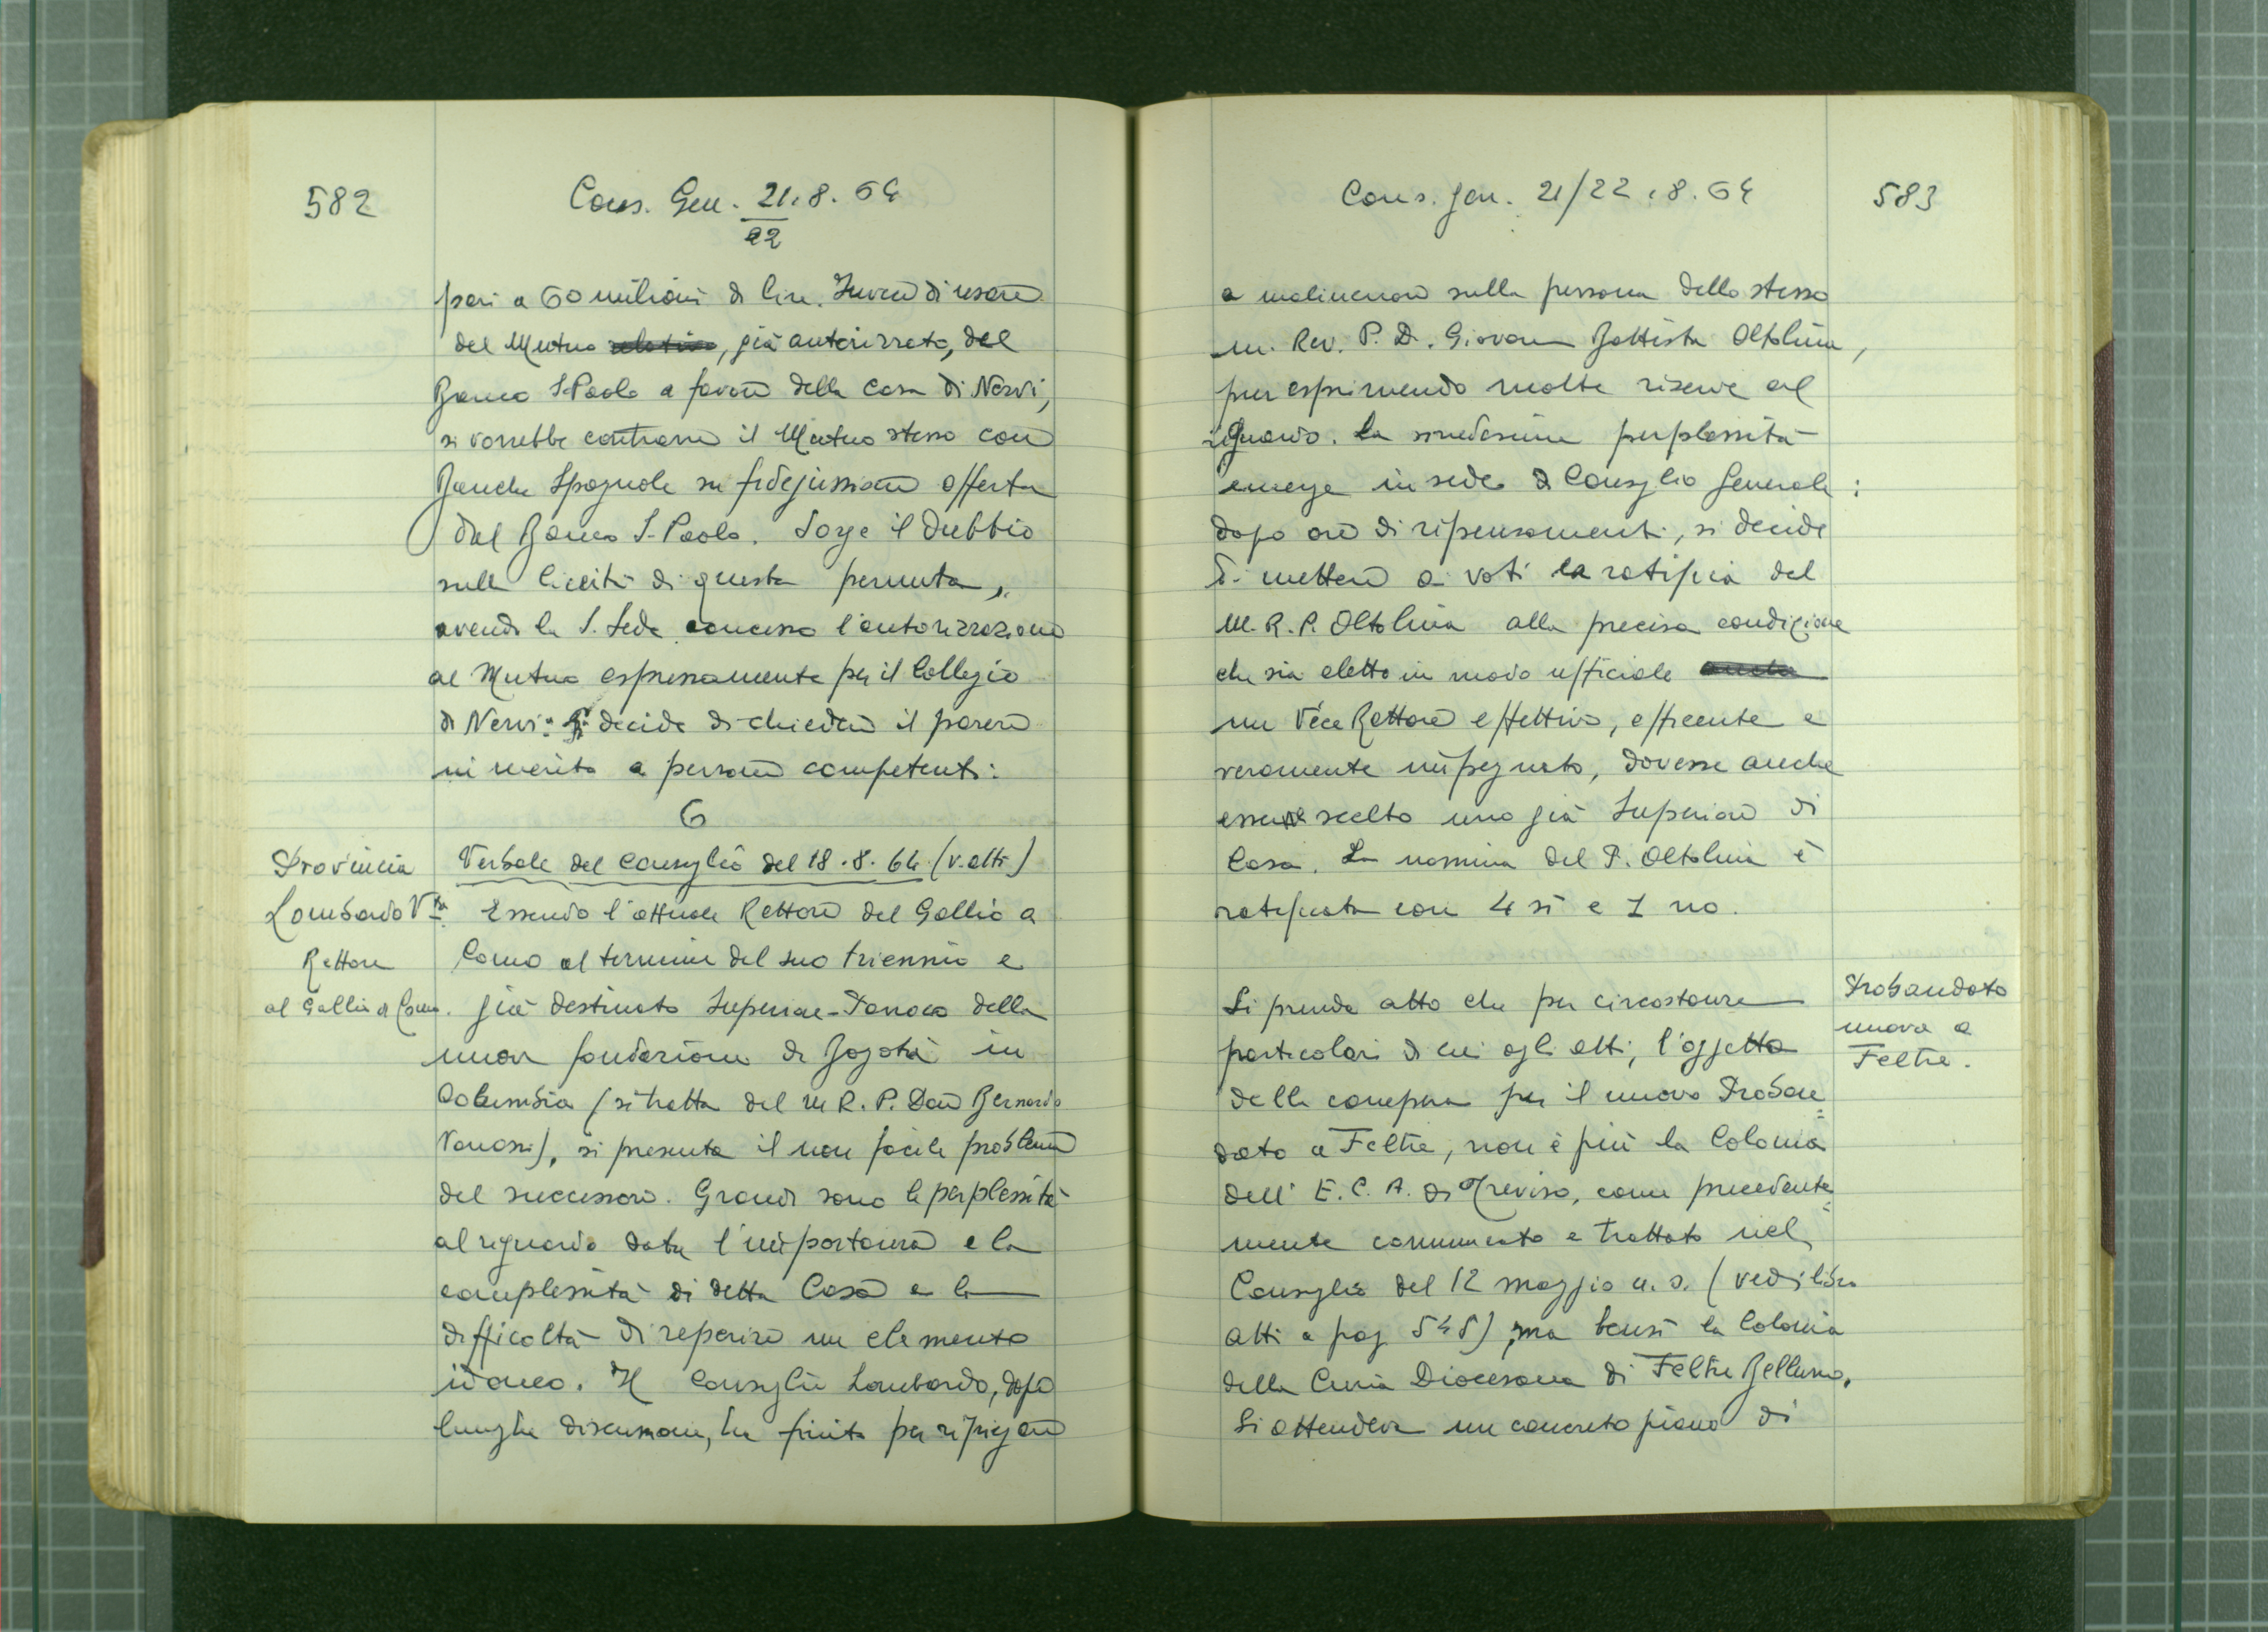 582
Cons. Gen. 21.8.64
22
pari a 60 milioni di lire. Invece di usare
del Mutuo relativo, già autorizzato, del
Banco S. Paolo a favore della Casa di Nervi,
si vorrebbe contrarre il Mutuo stesso con
Banche Spagnole su fidejussione offerta
dal Banco S. Paolo. Sorge il dubbio
sulla liceità di questa permuta,
avendo la S. Sede concesso l'autorizzazione
al Mutuo espressamente per il Collegio
di Nervi: Si decide di chiedere il parere
in merito a persone competenti.
6
Provincia
Lombardo Vta
Rettore
al Gallio di Como.
Verbale del Consiglio del 18.8.64 (v. atti)
Essendo l'attuale Rettore del Gallio a
Como al termine del suo triennio e
già destinato Superiore-Parroco della
nuova fondazione di Bogotà in
Columbia (si tratta del M. R. P. Don Bernardo
Vanossi), si presenta il non facile problema
del successore. Grandi sono le perplessità
al riguardo data l'importanza e la
complessità di detta Casa e la
difficoltà di reperire un elemento
idoneo. Il Consiglio Lombardo, dopo
lunghe discussioni, ha finito per ripiegare
Cons. gen. 21/22.8.64
583
a malincuore sulla persona dello stesso
M. Rev. P. D. Giovanni Battista Oltolina,
pur esprimendo molte riserve al
riguardo. La medesima perplessità
emerge in sede di Consiglio Generale:
dopo ore di ripensamenti, si decide
di mettere ai voti la ratifica del
M. R. P. Oltolina alla precisa condizione
che sia eletto in modo ufficiale
un Vice Rettore effettivo, efficente e
veramente impegnato, dovesse anche
essere scelto uno già Superiore di
Casa. La nomina del P. Oltolina è
ratificata con 4 sì e 1 no.
Probandato
nuovo a
Feltre.
Si prende atto che per circostanze
particolari di cui agli atti, l'oggetto
della compera per il nuovo Proban=
dato a Feltre, non è più la Colonia
dell'E.C.A. di Treviso, come precedente=
mente comunicato e trattato nel
Consiglio del 12 maggio u.s. (vedi libro
atti a pag. 545), ma bensì la Colonia
della Curia Diocesana di Feltre Belluno.
Si attendeva un concreto piano di